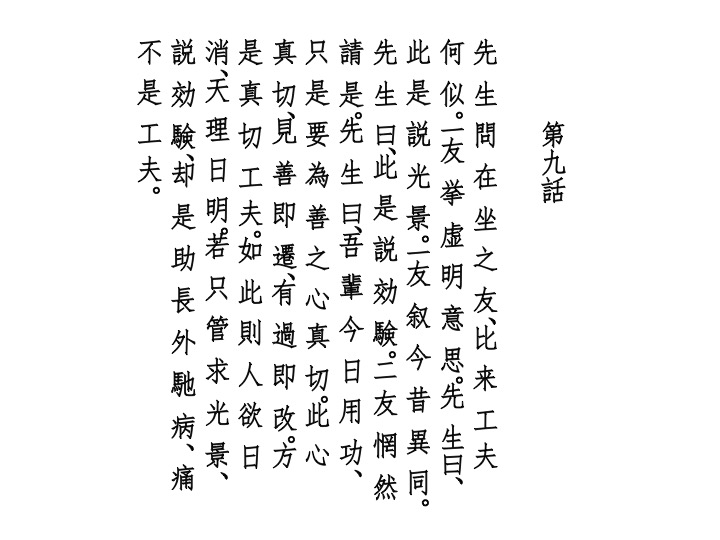 第九話
先生問在坐之友、比来工夫
何似。一友挙虚明意思。先生曰、
此是説光景。一友叙今昔異同。
先生曰、此是説効験。二友惘然
請是。先生曰、吾輩今日用功、
只是要為善之心真切。此心
真切、見善即遷、有過即改。方
是真切工夫。如此則人欲日
消、天理日明。若只管求光景、
説効験、却是助長外馳病、痛
不是工夫。